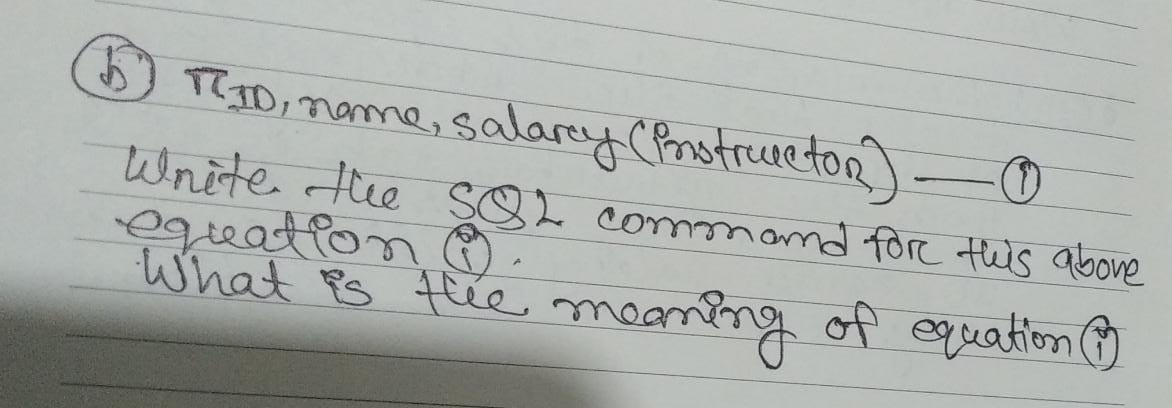 ⓑ π ID, name, salary (instructor) — ⓘ
Write the SQL command for this above
equation ⓘ.
What is the meaning of equation ⓘ